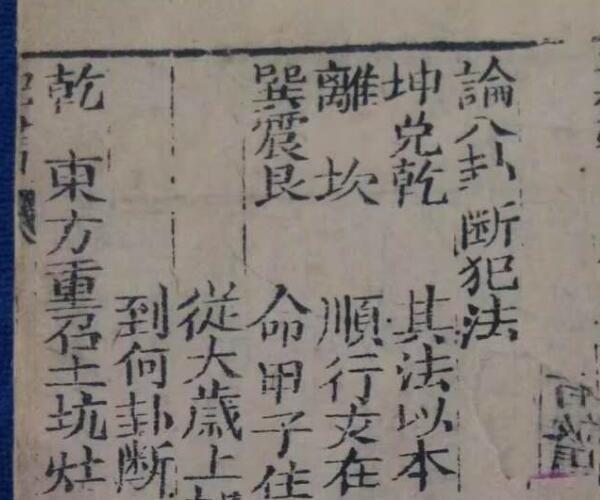 論八卦断犯法
坤兌乾 其法以本
離 坎 順行亥在
巽震艮 命甲子住
從大歲上
到何卦断
乾 東方重召土坑灶